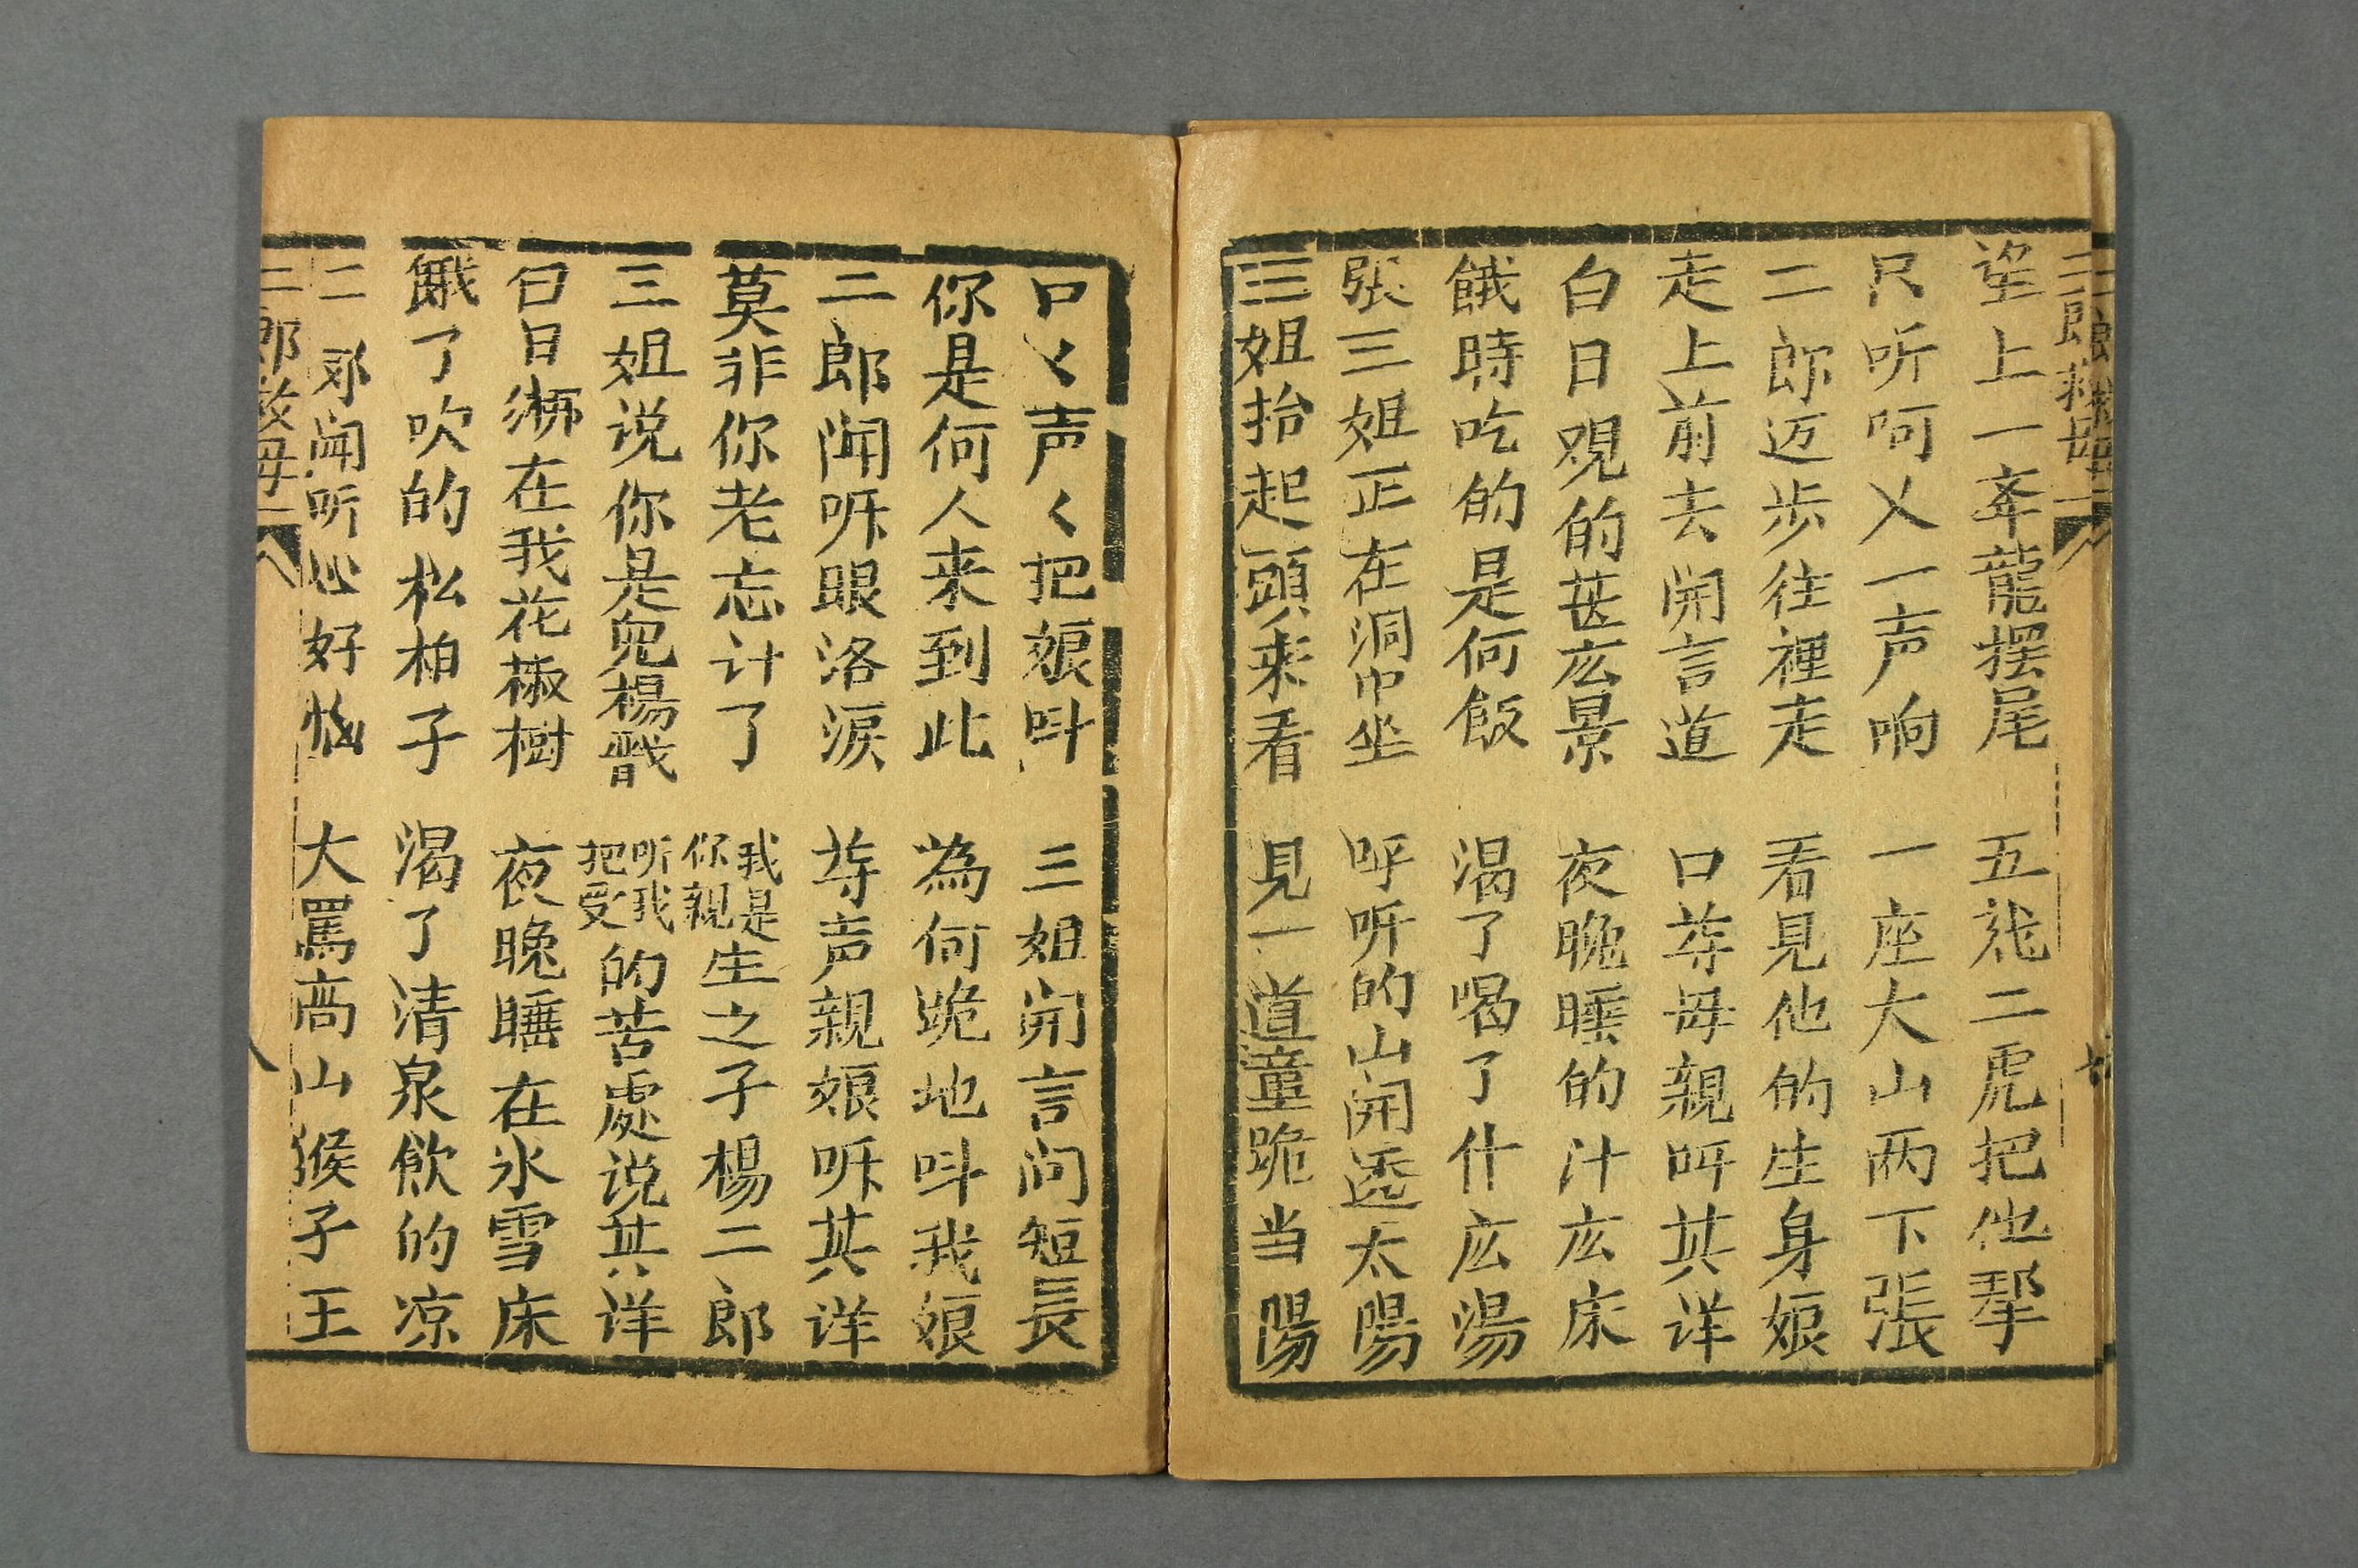 二郎救母
望上一奔龍摆尾 五龙二虎把他拏
只听呵乂一声响 一座大山两下張
二郎迈步往裡走 看見他的生身娘
走上前去開言道 口荐母親呌其详
白日覌的甚庅景 夜晚睡的汁庅床
餓時吃的是何飯 渴了喝了什庅湯
張三姐正在洞中坐 呼听的山開透太陽
三姐抬起頭来看 見一道童跪当陽
口〻声〻把娘呌 三姐开言问短長
你是何人来到此 為何跪地呌我娘
二郎闻听眼洛淚 荐声親娘听其详
莫非你老忘计了 我是你親生之子楊二郎
三姐说你是兜楊戬 听我把受的苦處说其详
曰日在我花椒樹 夜晚睡在氷雪床
餓了吹的松柏子 渴了清泉飲的凉
二郎闻听心好恼 大罵高山猴子王
二郎救母